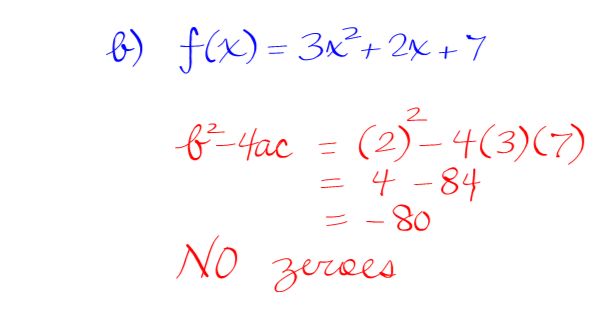 b) f(x) = 3x² + 2x + 7
b² - 4ac = (2)² - 4(3)(7)
= 4 - 84
= -80
NO zeroes